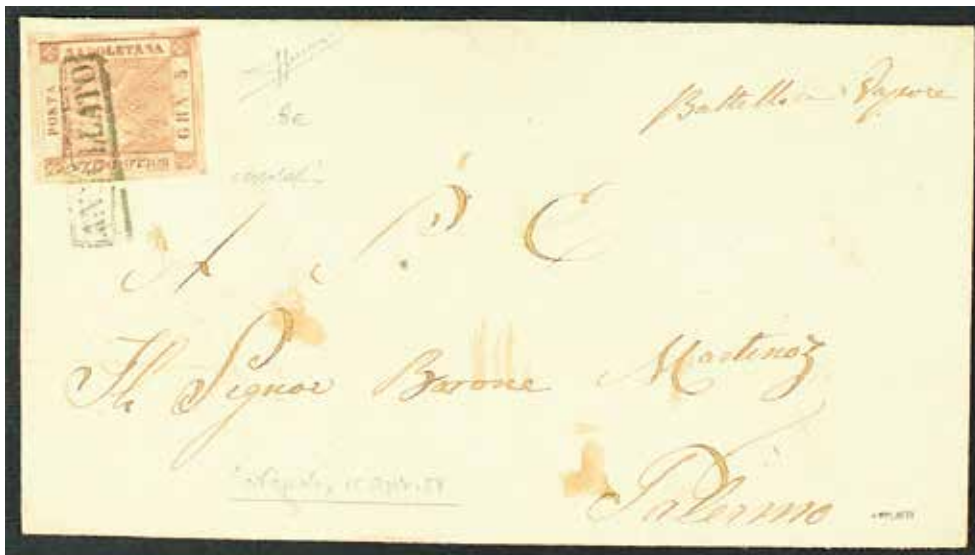 POSTA NAPOLETANA
GRA 5
ANNULLATO
Battello a Vapore
8c
A S. E.
Il Signor Barone Martinez
Palermo